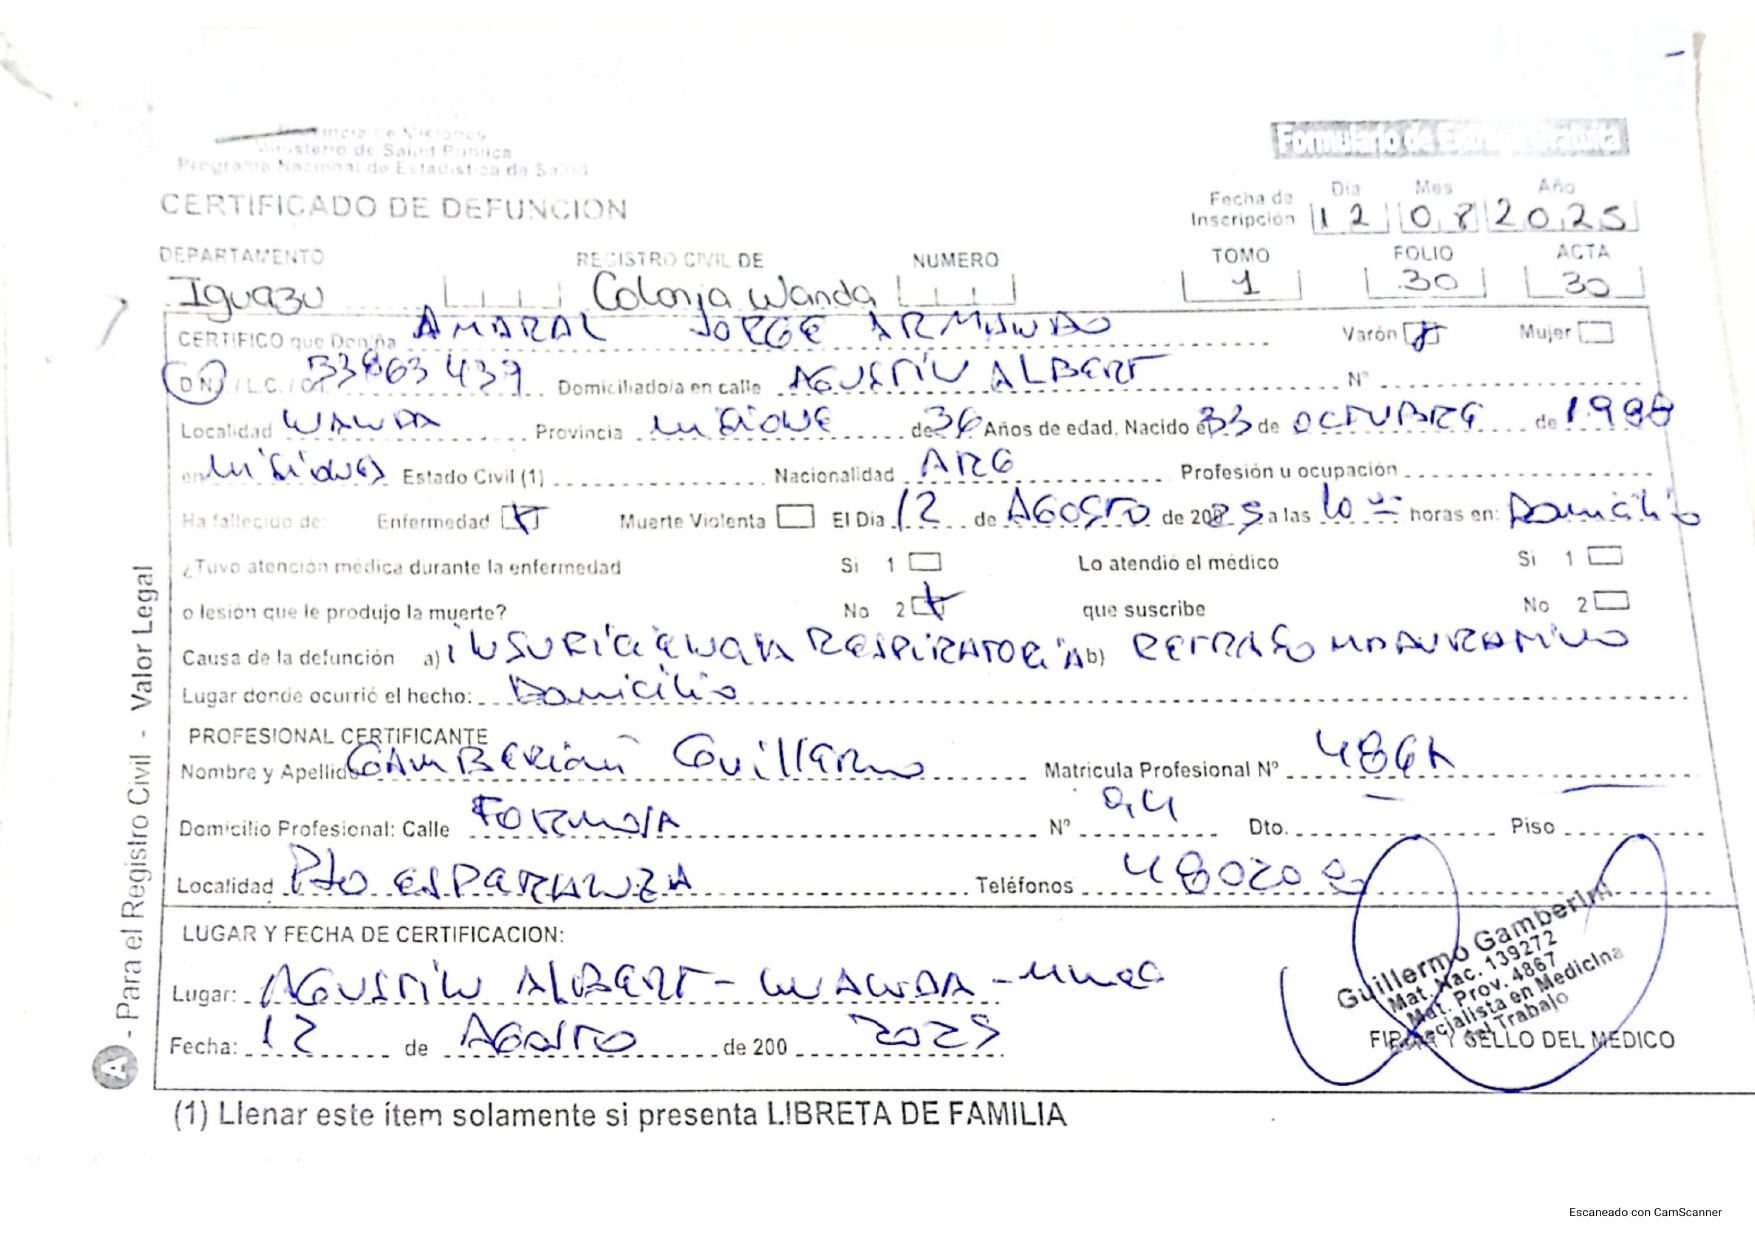 Provincia de Misiones
Ministerio de Salud Pública
Programa Nacional de Estadística de Salud
Formulario de Gratuita
CERTIFICADO DE DEFUNCION
Fecha de Inscripción Dia Mes Año
12 08 2025
DEPARTAMENTO REGISTRO CIVIL DE NUMERO TOMO FOLIO ACTA
Iguazu Colonia Wanda 1 30 30
CERTIFICO que Don/ña AMARAL JORGE ARMANDO Varón Mujer
D N / L.C. / 439 Domiciliado/a en calle AGUSTÍN ALBERT Nº
Localidad WANDA Provincia de Años de edad, Nacido el de OCTUBRE de
en Misiones Estado Civil (1) Nacionalidad ARG Profesión u ocupación
Ha fallecido de: Enfermedad Muerte Violenta El Dia 12 de AGOSTO de 2025 a las 10 horas en: Domicilio
¿Tuvo atención médica durante la enfermedad Si 1 Lo atendió el médico Si 1
o lesión que le produjo la muerte? No 2 que suscribe No 2
Causa de la defunción a) RESPIRATORIA b) RETRASO MADURATIVO
Lugar donde ocurrió el hecho: Domicilio
PROFESIONAL CERTIFICANTE
Nombre y Apellido Guillermo Matrícula Profesional Nº
Domicilio Profesional: Calle FORMOSA Nº Dto. Piso
Localidad Pto ESPERANZA Teléfonos
LUGAR Y FECHA DE CERTIFICACION:
Lugar: AGUSTÍN ALBERT - WANDA -
Fecha: 12 de AGOSTO de 200 2025
Guillermo Gamberini
Mat. Nac. 139272
Mat. Prov. 4867
Especialista en Medicina
del Trabajo
FIRMA Y SELLO DEL MEDICO
A - Para el Registro Civil - Valor Legal
(1) Llenar este ítem solamente si presenta LIBRETA DE FAMILIA
Escaneado con CamScanner